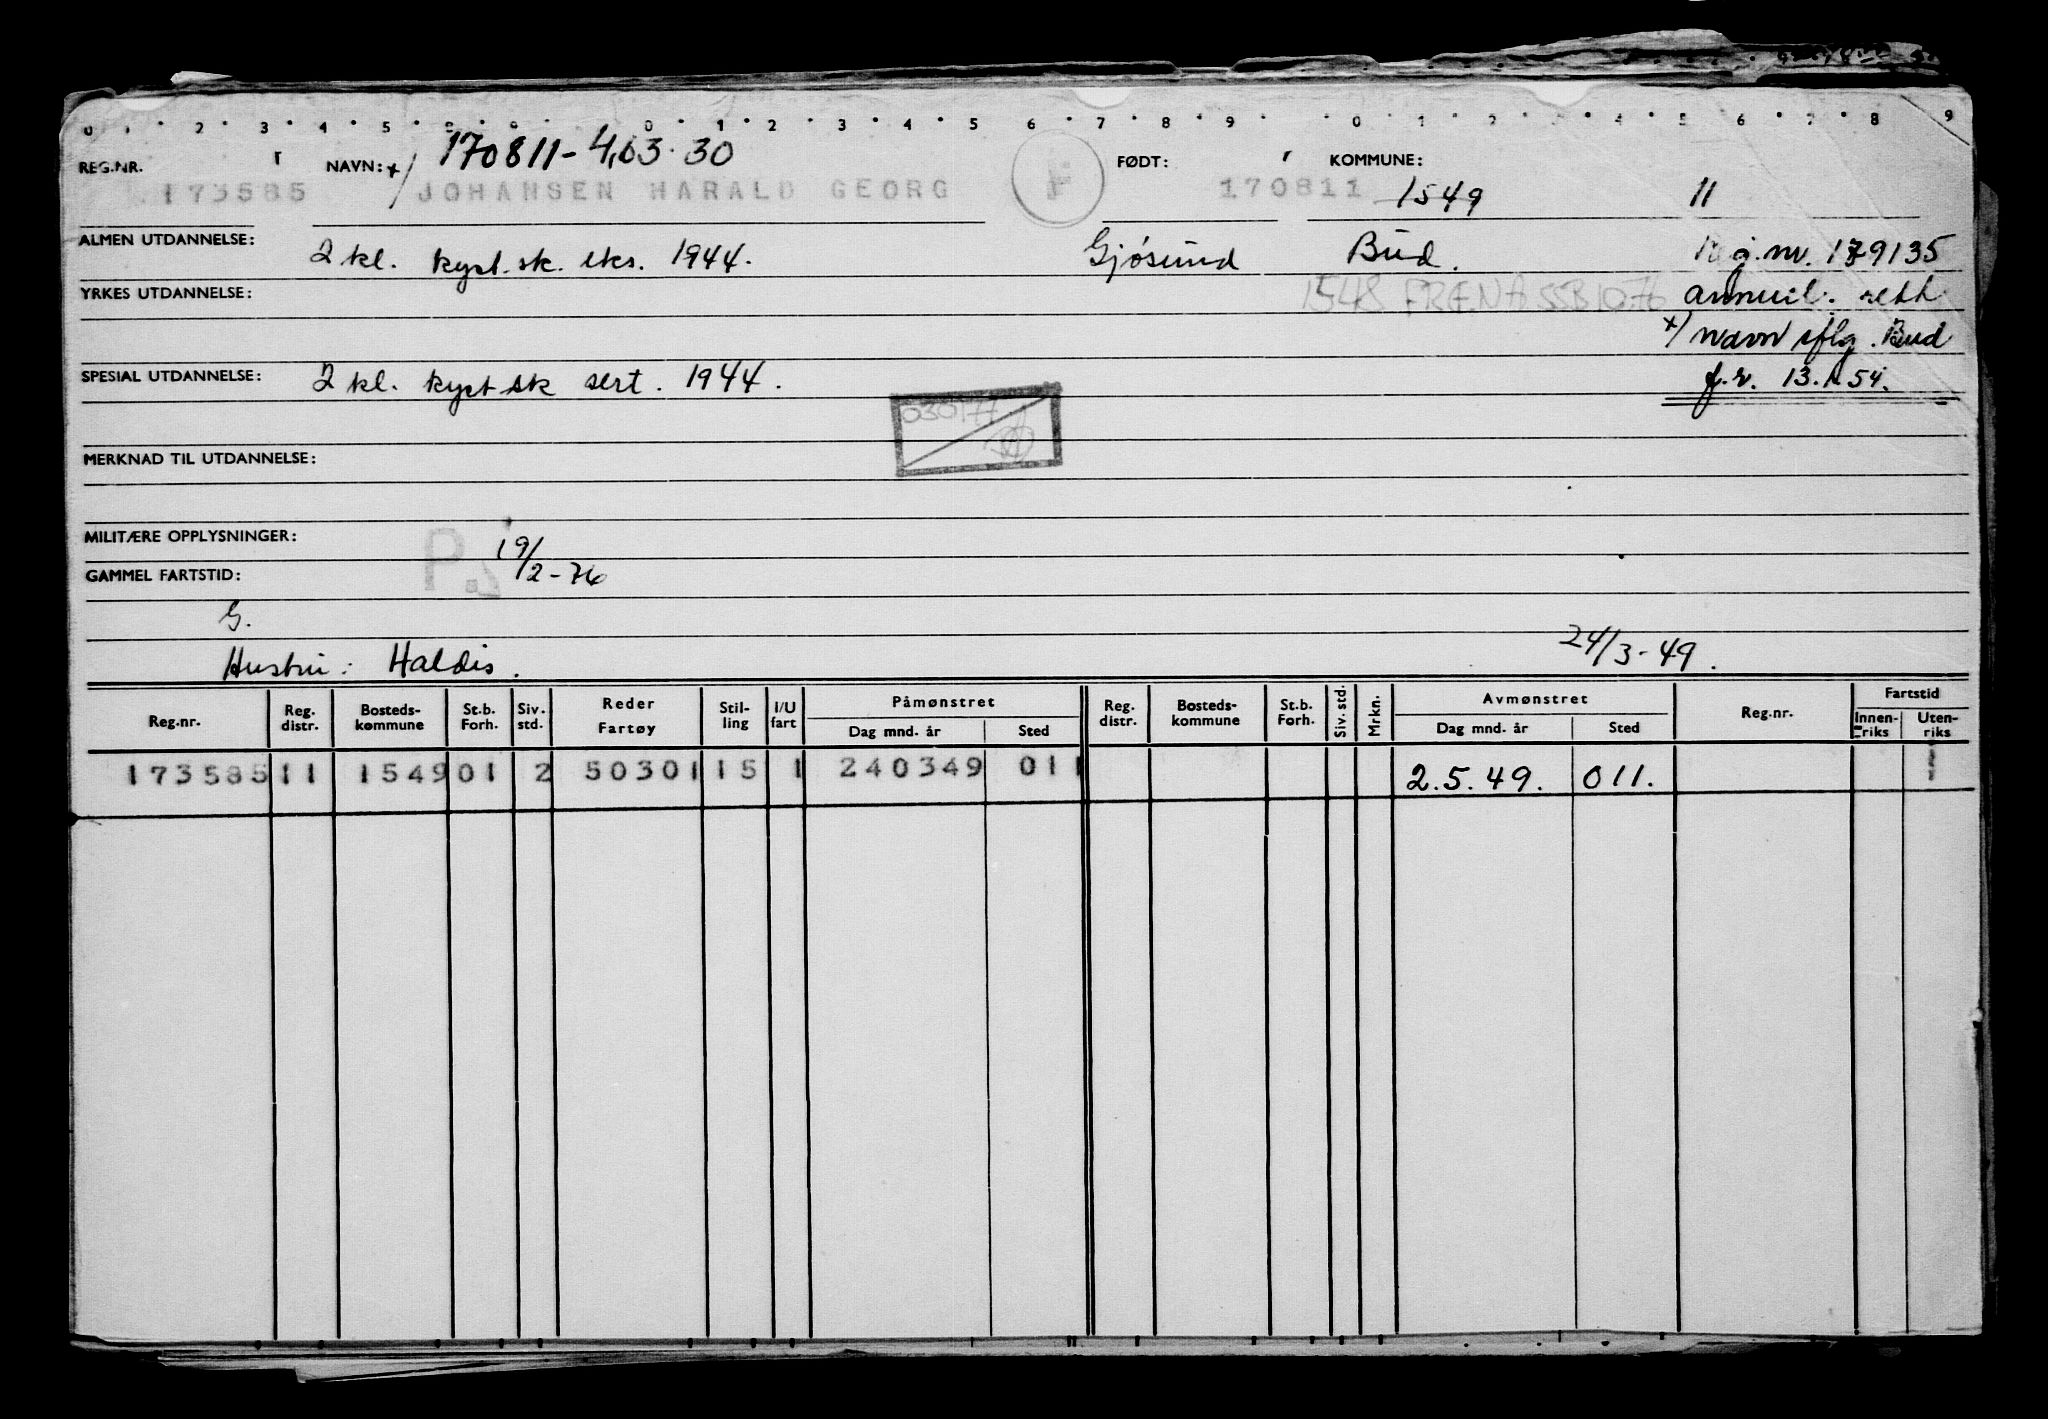 0 1 2 3 4 5 0 1 2 3 4 5 6 7 8 9 0 1 2 3 4 5 6 7 8 9
REG.NR. NAVN: x/ 170811- 4,03.30 FØDT: KOMMUNE:
173585 JOHANSEN HARALD GEORG 170811 1549 11
ALMEN UTDANNELSE: 2 kl. kyst.sk. eks. 1944. Gjøsund Bud. Reg.nr. 179135
YRKES UTDANNELSE: 1548 FRÆNA SSB 10.76 annul. rett
x/ Navn iflg. Bud
SPESIAL UTDANNELSE: 2 kl. kyst sk sert. 1944. f.r. 13.1.54.
030177
MERKNAD TIL UTDANNELSE:
MILITÆRE OPPLYSNINGER: P. 19/2-76
GAMMEL FARTSTID:
G.
Hustru: Haldis. 24/3-49.
Reg.nr. Reg. distr. Bosteds-kommune St.b. Forh. Siv. std. Reder Fartøy Stil-ling I/U fart Påmønstret Dag mnd. år Sted Reg. distr. Bosteds-kommune St.b. Forh. Siv. std. Mrkn. Avmønstret Dag mnd. år Sted Reg.nr. Fartstid Innen-riks Uten-riks
173585 11 1549 01 2 50301 15 1 240349 011 2.5.49. 011. 1